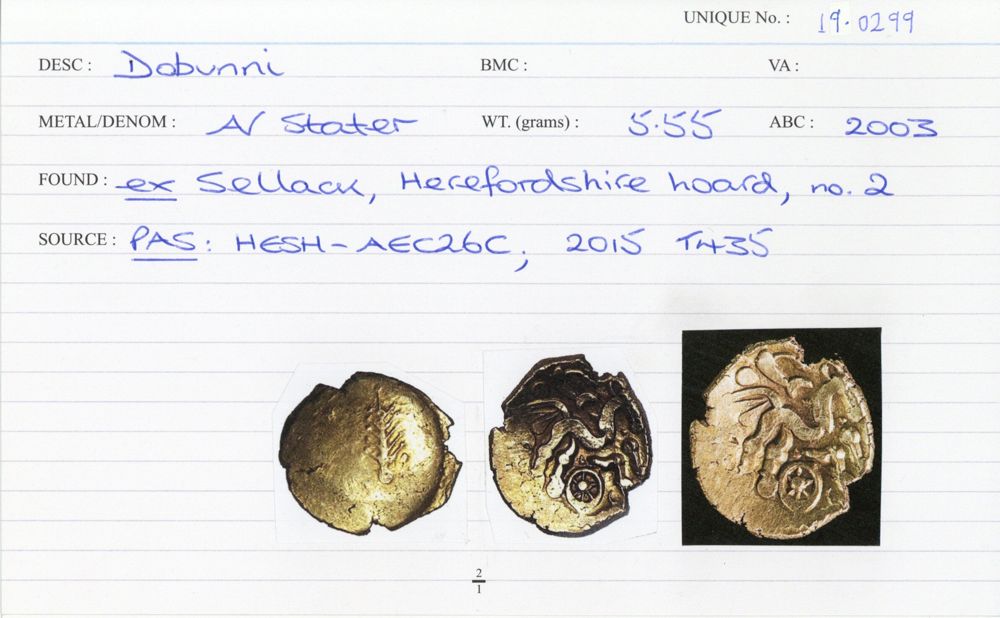 UNIQUE No. : 19.0299
DESC : Dobunni BMC : VA :
METAL/DENOM : AV Stater WT. (grams) : 5.55 ABC : 2003
FOUND : ex Sellack, Herefordshire hoard, no. 2
SOURCE : PAS: HESH-AEC26C, 2015 T435
2
1